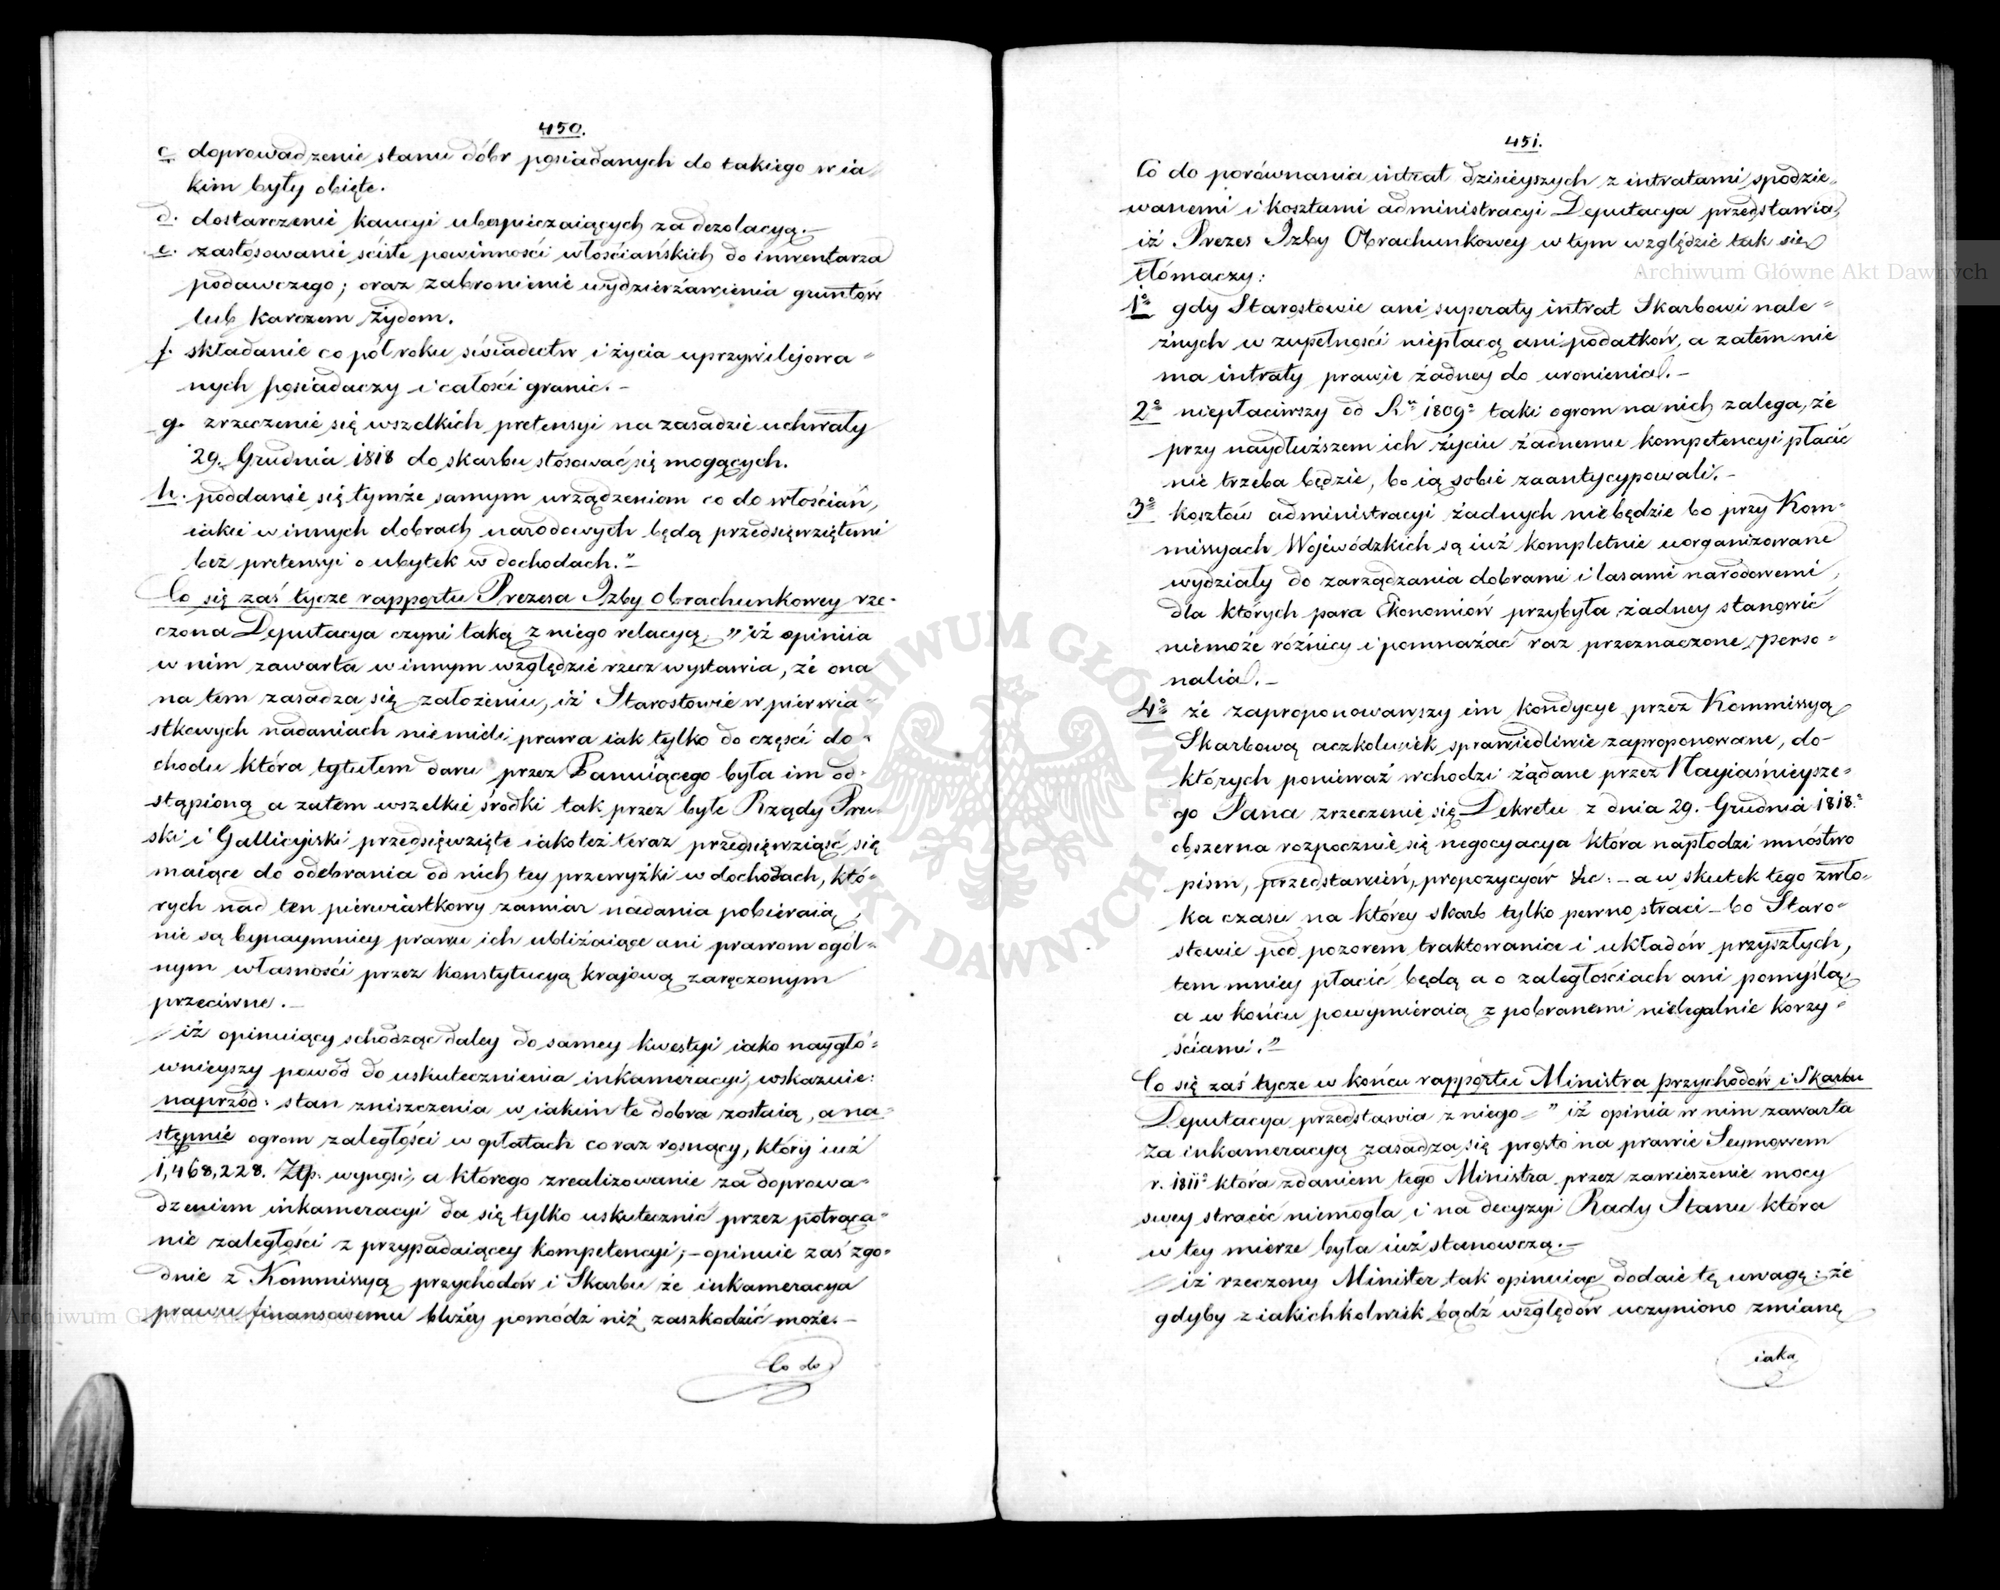 450.
c. doprowadzenie stanu dóbr posiadanych do takiego w ia
kim były obięte.
d. dostarczenie kaucyi ubespieczaiących za dezolacyą.—
e. zastósowanie sciste powinności włościańskich do inwentarza
podawczego; oraz zabronienie wydzierżawienia gruntów
lub karczem Żydom.
f. składanie co pół roku świadectw i życia uprzywilejowa=
nych posiadaczy i całości granic.—
g. zrzeczenie się wszelkich pretensyi na zasadzie uchwały
29. Grudnia 1818 do skarbu stósować się mogących.
h. poddanie się tymże samym urządzeniom co do włościan,
iakie w innych dobrach narodowych będą przedsięwziętemi
bez pretensyi o ubytek w dochodach."—
Co się zaś tycze rapportu Prezesa Izby Obrachunkowey rze-
czona Deputacya czyni taką z niego relacyą, "iż opiniia
w nim zawarta w innym względzie rzecz wystawia, że ona
na tem zasadza się założeniu, iż Starostowie w pierwia=
stkowych nadaniach niemieli prawa iak tylko do części do=
chodu która tytułem daru przez Panuiącego była im od=
stąpioną a zatem wszelkie środki tak przez byłe Rządy Pru=
ski i Gallicyiski przedsięwzięte iakoteż teraz przedsięwziąść się
maiące do odebrania od nich tey przewyżki w dochodach, któ=
rych nad ten pierwiastkowy zamiar nadania pobieraią,
nie są bynaymniey prawu ich ubliżaiące ani prawom ogól=
nym własności przez konstytucyą krajową zaręczonym
przeciwne.—
iż opiniuiący schodząc daley do samey kwestyi iako naygłó=
wnieyszy powód do uskutecznienia inkameracyi, wskazuie:
naprzód: stan zniszczenia w iakim te dobra zostaią, a na=
stępnie ogrom zaległości w opłatach coraz rosnący, który iuż
1,468,228. Złp. wynosi, a którego zrealizowanie za doprowa=
dzeniem inkameracyi da się tylko uskutecznić przez potrąca=
nie zaległości z przypadaiącey kompetencyi;— opiniuie zaś zgo=
dnie z Kommissyą przychodów i Skarbu że inkameracya
prawu finansowemu bliżey pomódz niż zaszkodzić może.—
Co do
451.
Co do porównania intrat dzisieyszych z intratami spodzie=
wanemi i kosztami administracyi Deputacya przedstawia,
iż Prezes Izby Obrachunkowey w tym względzie tak się
tłómaczy:
1º gdy Starostowie ani superaty intrat Skarbowi nale=
żnych w zupełności niepłacą ani podatków, a zatem nie
ma intraty prawie żadney do uronienia.—
2º niepłaciwszy od Rº 1809º taki ogrom na nich zalega, że
przy naydłuższem ich życiu żadnemu kompetencyi płacić
nie trzeba będzie, bo ią sobie zaantycypowali.—
3º kosztów administracyi żadnych niebędzie bo przy Kom=
missyach Wojewódzkich są iuż kompletnie uorganizowane
wydziały do zarządzania dobrami i lasami narodowemi,
dla których para Ekonomiów przybyła żadney stanowić
niemoże różnicy i pomnażać raz przeznaczone perso=
nalia.—
4º że zaproponowawszy im kondycye przez Kommissyą
Skarbową aczkolwiek sprawiedliwie zaproponowane, do
których ponieważ wchodzi żądane przez Nayiaśnieysze=
go Pana zrzeczenie się Dekretu z dnia 29. Grudnia 1818.º
obszerna rozpocznie się negocyacya która napłodzi mnóstwo
pism, przedstawień, propozycyów &c:— a w skutek tego zwło=
ka czasu na którey skarb tylko pewno straci— bo Staro=
stowie pod pozorem traktowania i układów przyszłych,
tem mniey płacić będą a o zaległościach ani pomyślą,
a w końcu powymieraią z pobranemi nielegalnie korzy=
ściami."—
Co się zaś tycze w końcu rapportu Ministra przychodów i Skarbu
Deputacya przedstawia z niego— " iż opinia w nim zawarta
za inkameracyą zasadza się prosto na prawie Seymowem
r. 1811º która zdaniem tego Ministra przez zawieszenie mocy
swey stracić niemogła i na decyzyi Rady Stanu która
w tey mierze była iuż stanowczą.—
iż rzeczony Minister tak opiniuiąc dodaie tę uwagę: że
gdyby z iakichkolwiek bądź względów uczyniono zmianę
iaka
Archiwum Główne Akt Dawnych
Archiwum Główne Akt Dawnych
ARCHIWUM GŁÓWNE AKT DAWNYCH